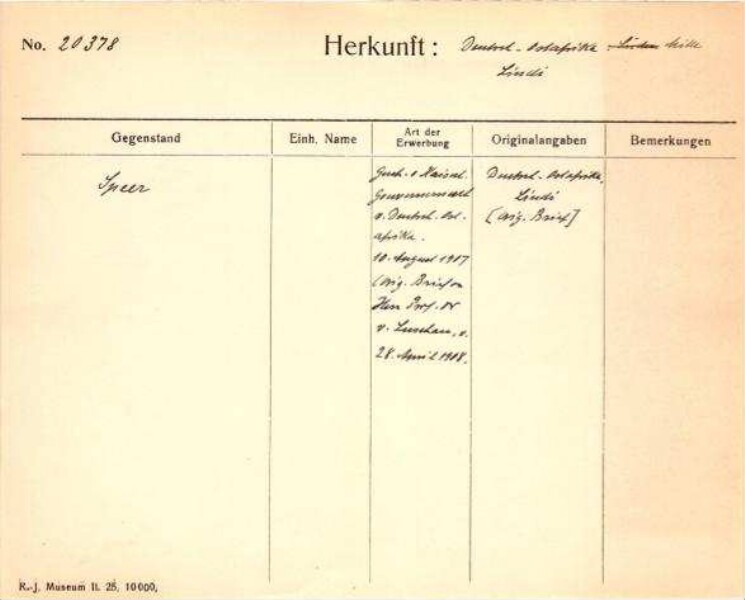 No. 20378
Herkunft: Deutsch-Ostafrika
Lindi
Gegenstand
Einh. Name
Art der
Erwerbung
Originalangaben
Bemerkungen
Speer
Gesch. v Kaiserl.
Gouvernement
v. Deutsch. Ost-
afrika.
10. August 1907
(Orig. Brief an
Herr Prof. Dr
v. Luschan, v.
28. April 1908.
Deutsch. Ostafrika,
Lindi
[Orig. Brief]
R.-J. Museum II. 25, 10000,